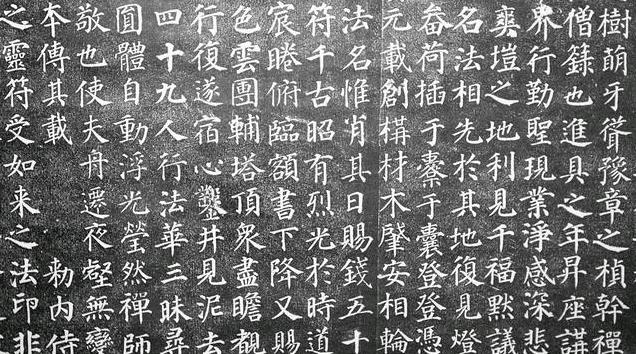 樹萌牙聳豫章之楨幹禪
僧籙也進具之年昇座講
界行勤聖現業淨感深悲
爽塏之地利見千福默議
名法相先於其地復見燈
畚荷插于橐于囊登登憑
元載創構材木肇安相輪
法名惟肖其日賜錢五十
符千古昭有烈光於時道
宸睠俯臨額書下降又賜
色雲團輔塔頂眾盡瞻覩
行復遂宿心鑿井見泥去
四十九人行法華三昧尋
圓體自動浮光瑩然禪師
敬也使夫舟遷夜壑無變
本傳其載 勑内侍
之靈符受如来之法印非